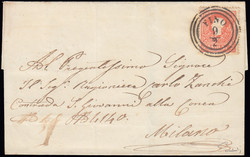 FINO
9
Al Pregiatissimo Signore
Il Sig. Ragioniere Carlo Zanchi
Contrada S. Giovanni alla Conca
N. 4140.
Milano